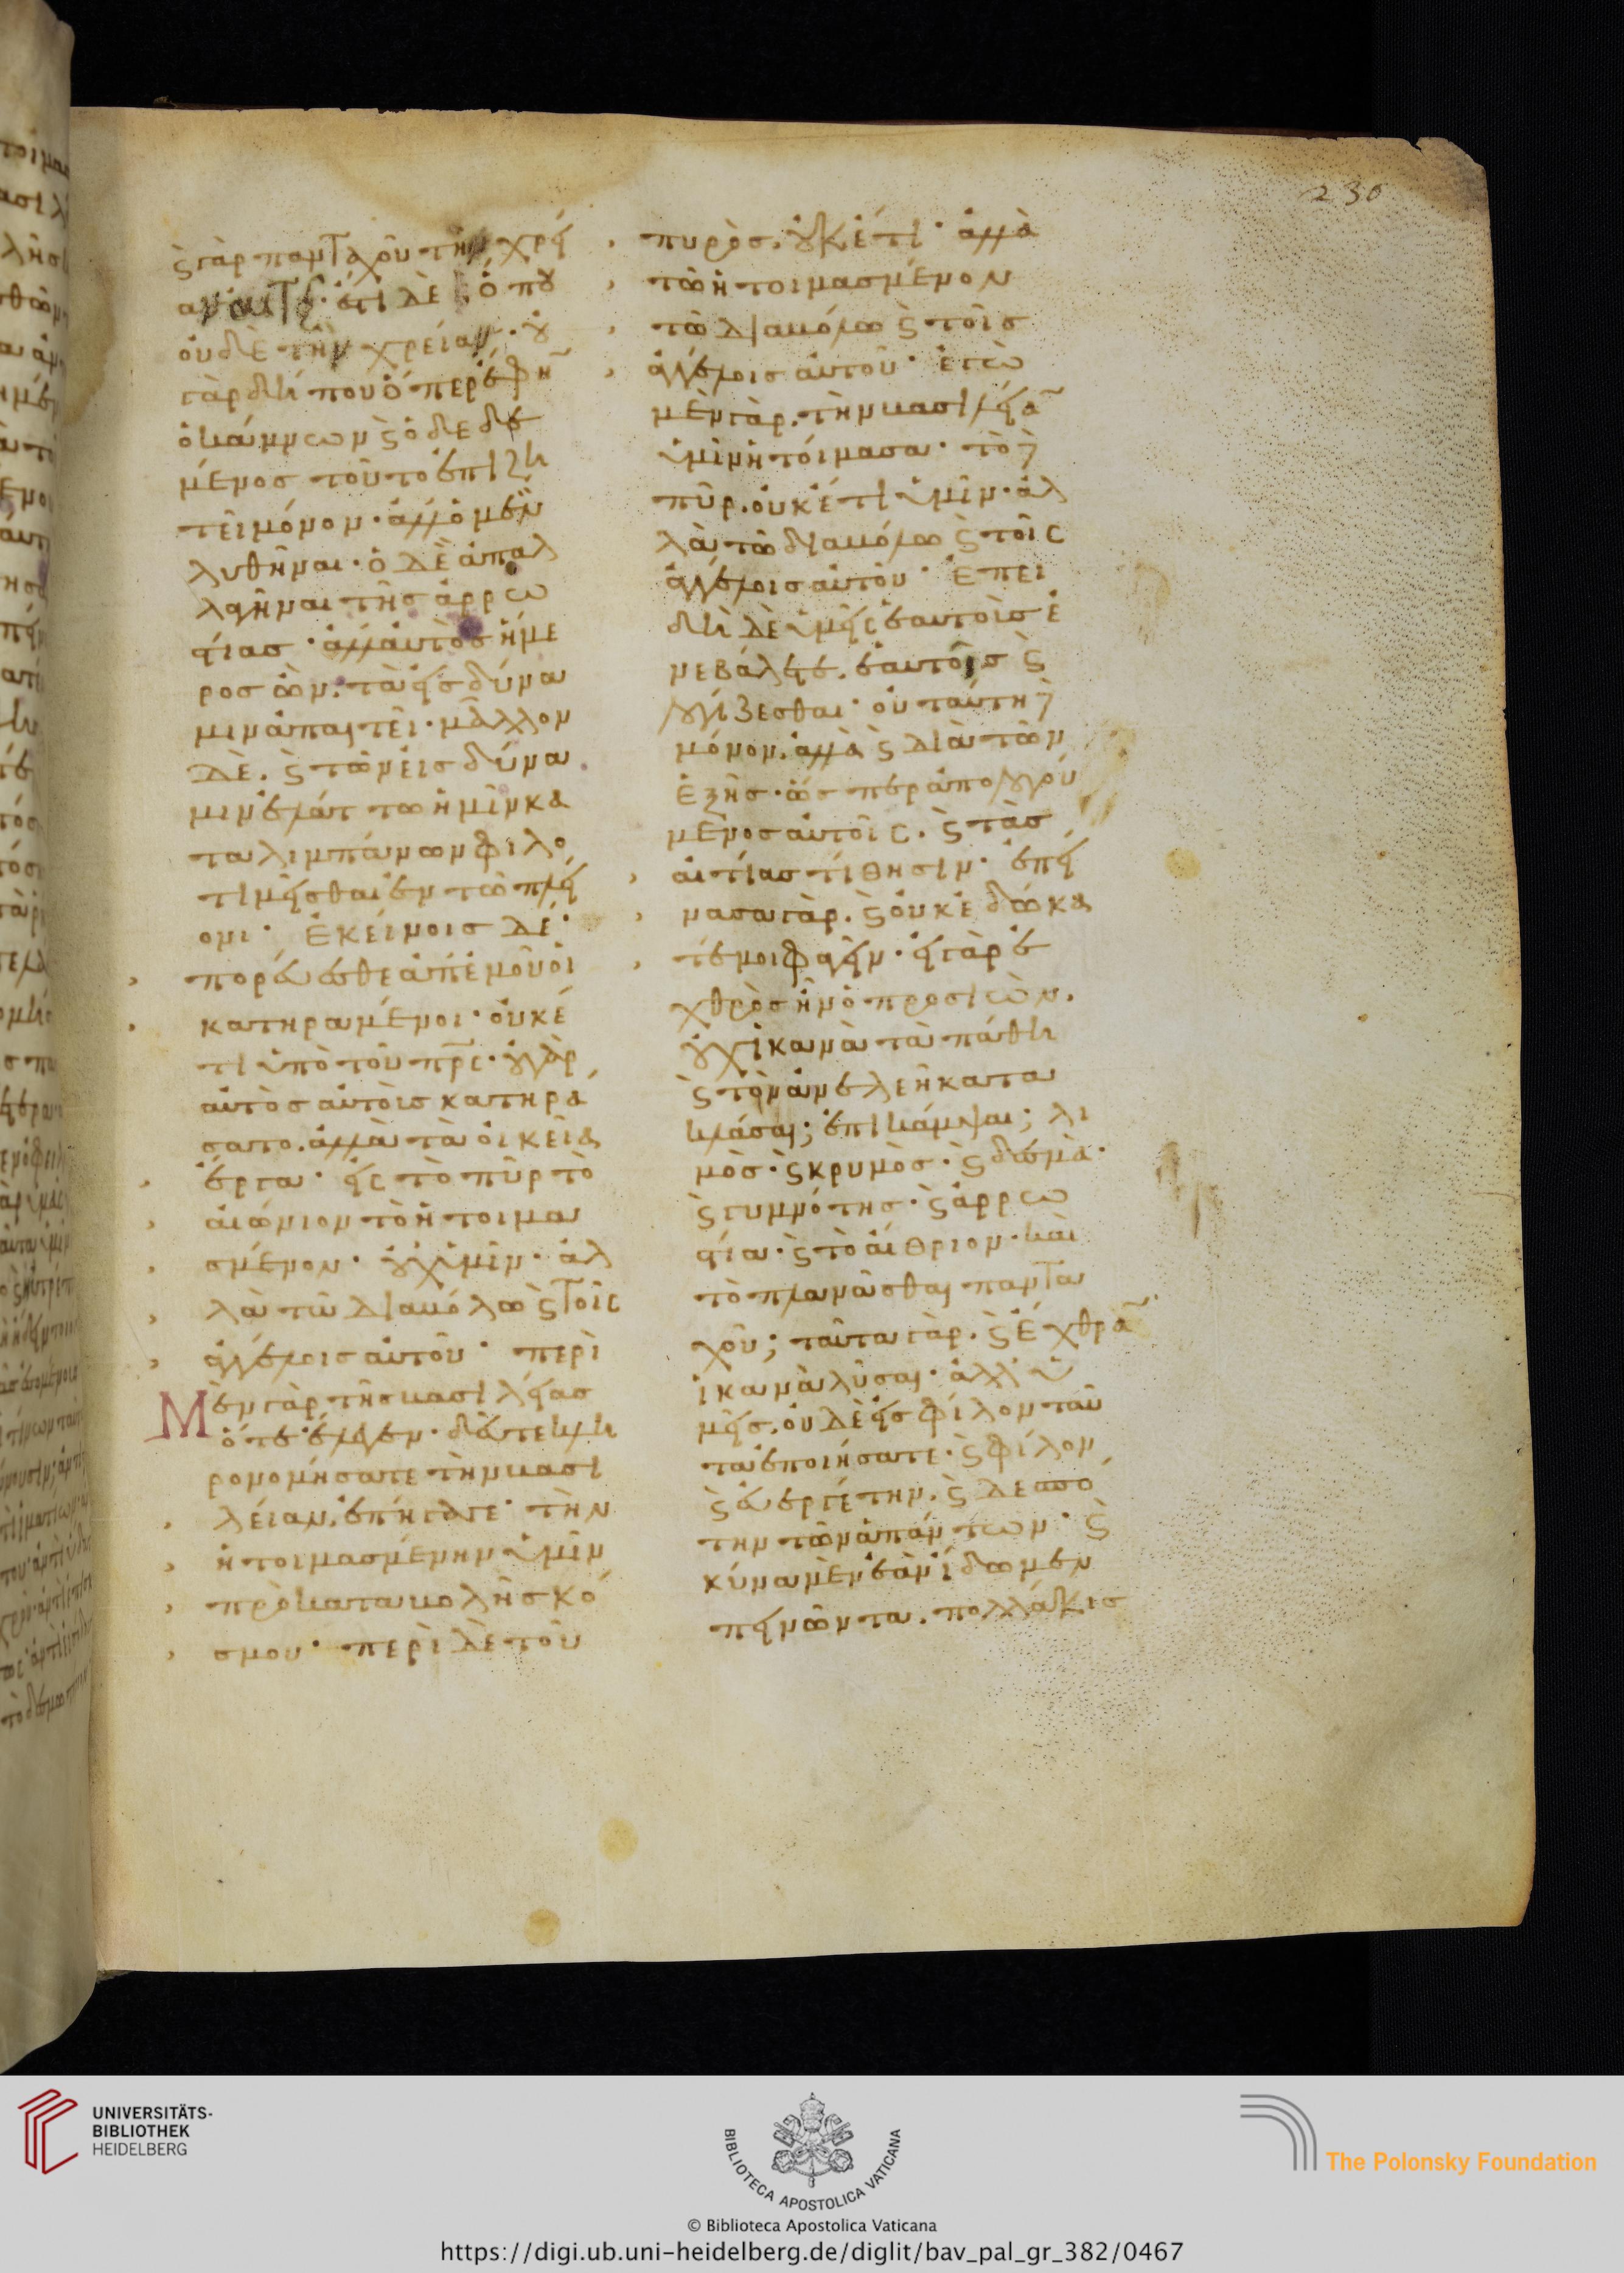 ϛ γὰρ πανταχοῦ τὴν χρεί
αν αὐτῆς· ἔτι δὲ ὅπου
οὐδὲ τὴν χρείαν· οὐ
γὰρ δήπου ὅπερ ἔφην
ὁ κάμνων ϛ ὁ δεδε
μένος τοῦτο ἐπιζη
τεῖ μόνον· ἀλλ' ὁ μὲν
λυθῆναι· ὁ δὲ ἀπαλ
λαγῆναι τῆς ἀρρω
στίας· ἀλλ' αὐτὸς ἥμε
ρος ὢν. τὰ εἰς δύνα
μιν ἀπαιτεῖ· μᾶλλον
δὲ. ϛ τῶν εἰς δύνα
μιν ἐλάττω ἡμῖν κα
ταλιμπάνων φιλο
τιμεῖσθαι ἐν τῷ πλεί
ονι· Ἐκείνοις δέ·
πορεύεσθε ἀπ' ἐμοῦ οἱ
κατηραμένοι· οὐκέ
τι ὑπὸ τοῦ πρς· οὐ γὰρ
αὐτὸς αὐτοῖς κατηρά
σατο. ἀλλὰ τὰ οἰκεῖα
ἔργα· εἰς τὸ πῦρ τὸ
αἰώνιον τὸ ἡτοιμα
σμένον· οὐχ ὑμῖν· ἀλ
λὰ τῷ διαβόλῳ ϛ τοῖς
ἀγγέλοις αὐτοῦ· περὶ
Μὲν γὰρ τῆς βασιλείας
ὅτε ἔλεγεν· δεῦτε κλη
ρονομήσατε τὴν βασι
λείαν. ἐπήγαγε· τὴν
ἡτοιμασμένην ὑμῖν
πρὸ καταβολῆς κό
σμου· περὶ δὲ τοῦ
πυρὸς. οὐκέτι· ἀλλὰ
τῷ ἡτοιμασμένον
τῷ διαβόλῳ ϛ τοῖς
ἀγγέλοις αὐτοῦ· ἐγὼ
μὲν γὰρ. τὴν βασιλείαν
ὑμῖν ἡτοίμασα· τὸ δὲ
πῦρ. οὐκέτι ὑμῖν· ἀλ
λὰ τῷ διαβόλῳ ϛ τοῖς
ἀγγέλοις αὐτοῦ· Ἐπει
δὴ δὲ ὑμεῖς ἑαυτοὺς ἐ
νεβάλετε. ἑαυτοῖς ϛ
λογίζεσθαι· οὐ ταύτη δὲ
μόνον. ἀλλὰ ϛ διὰ τῶν
ἑξῆς· ὥσπερ ἀπολογού
μενος αὐτοῖς. ϛ τὰς
αἰτίας τίθησιν· ἐπεί
νασα γὰρ. ϛ οὐκ ἐδώκα
τέ μοι φαγεῖν· εἰ γὰρ ἐ
χθρὸς ἦν ὁ προσιὼν.
οὐχ ἱκανὰ τὰ πάθη
ϛ τὸν ἀνελεῆ κατα
κλάσαι; ἐπικάμψαι; λι
μὸς· ϛ κρυμὸς· ϛ δεσμὰ·
ϛ γυμνότης· ϛ ἀρρω
στία· ϛ τὸ αἴθριον· καὶ
τὸ πλανᾶσθαι πανταν
χοῦ; ταῦτα γὰρ. ϛ ἔχθραν
ἱκανὰ λῦσαι· ἀλλ' ὑ
μεῖς. οὐδὲ εἰς φίλον ταῦ
τα ἐποιήσατε· ϛ φίλον
ϛ εὐεργέτην. ϛ δεσπό
την τῶν ἁπάντων· ϛ
κύνα μὲν ἐὰν ἴδωμεν
πεινῶντα. πολλάκις
230
UNIVERSITÄTS-
BIBLIOTHEK
HEIDELBERG
BIBLIOTECA APOSTOLICA VATICANA
The Polonsky Foundation
© Biblioteca Apostolica Vaticana
https://digi.ub.uni-heidelberg.de/diglit/bav_pal_gr_382/0467